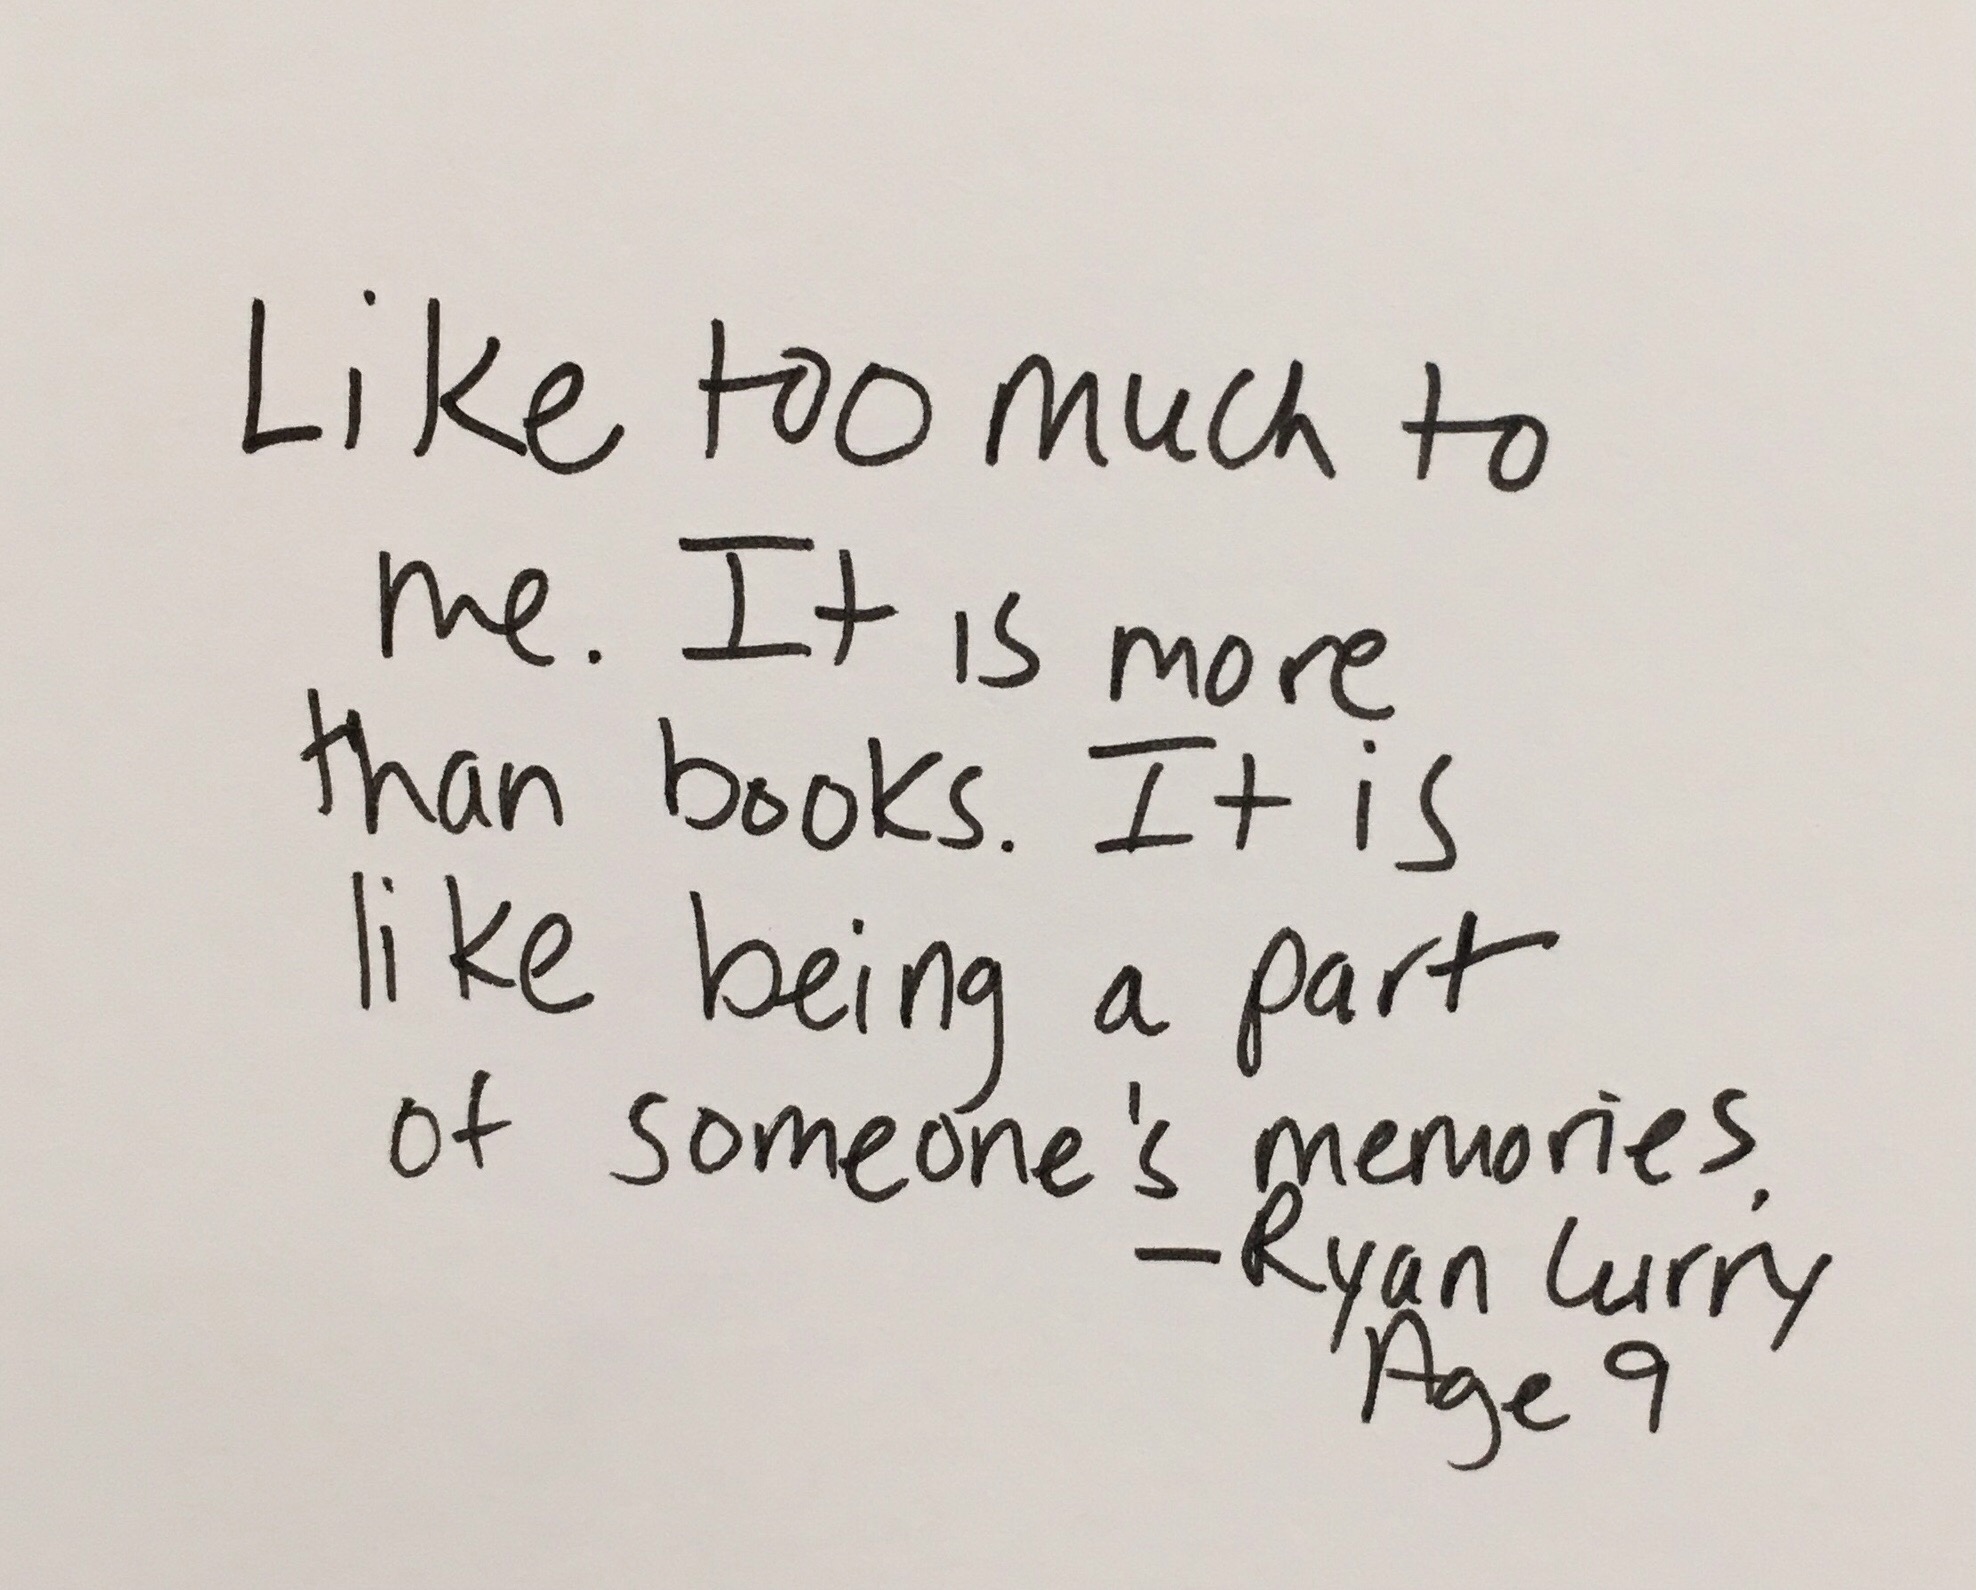 Like too much to
me. It is more
than books. It is
like being a part
of someone's memories.
—Ryan Curry
Age 9